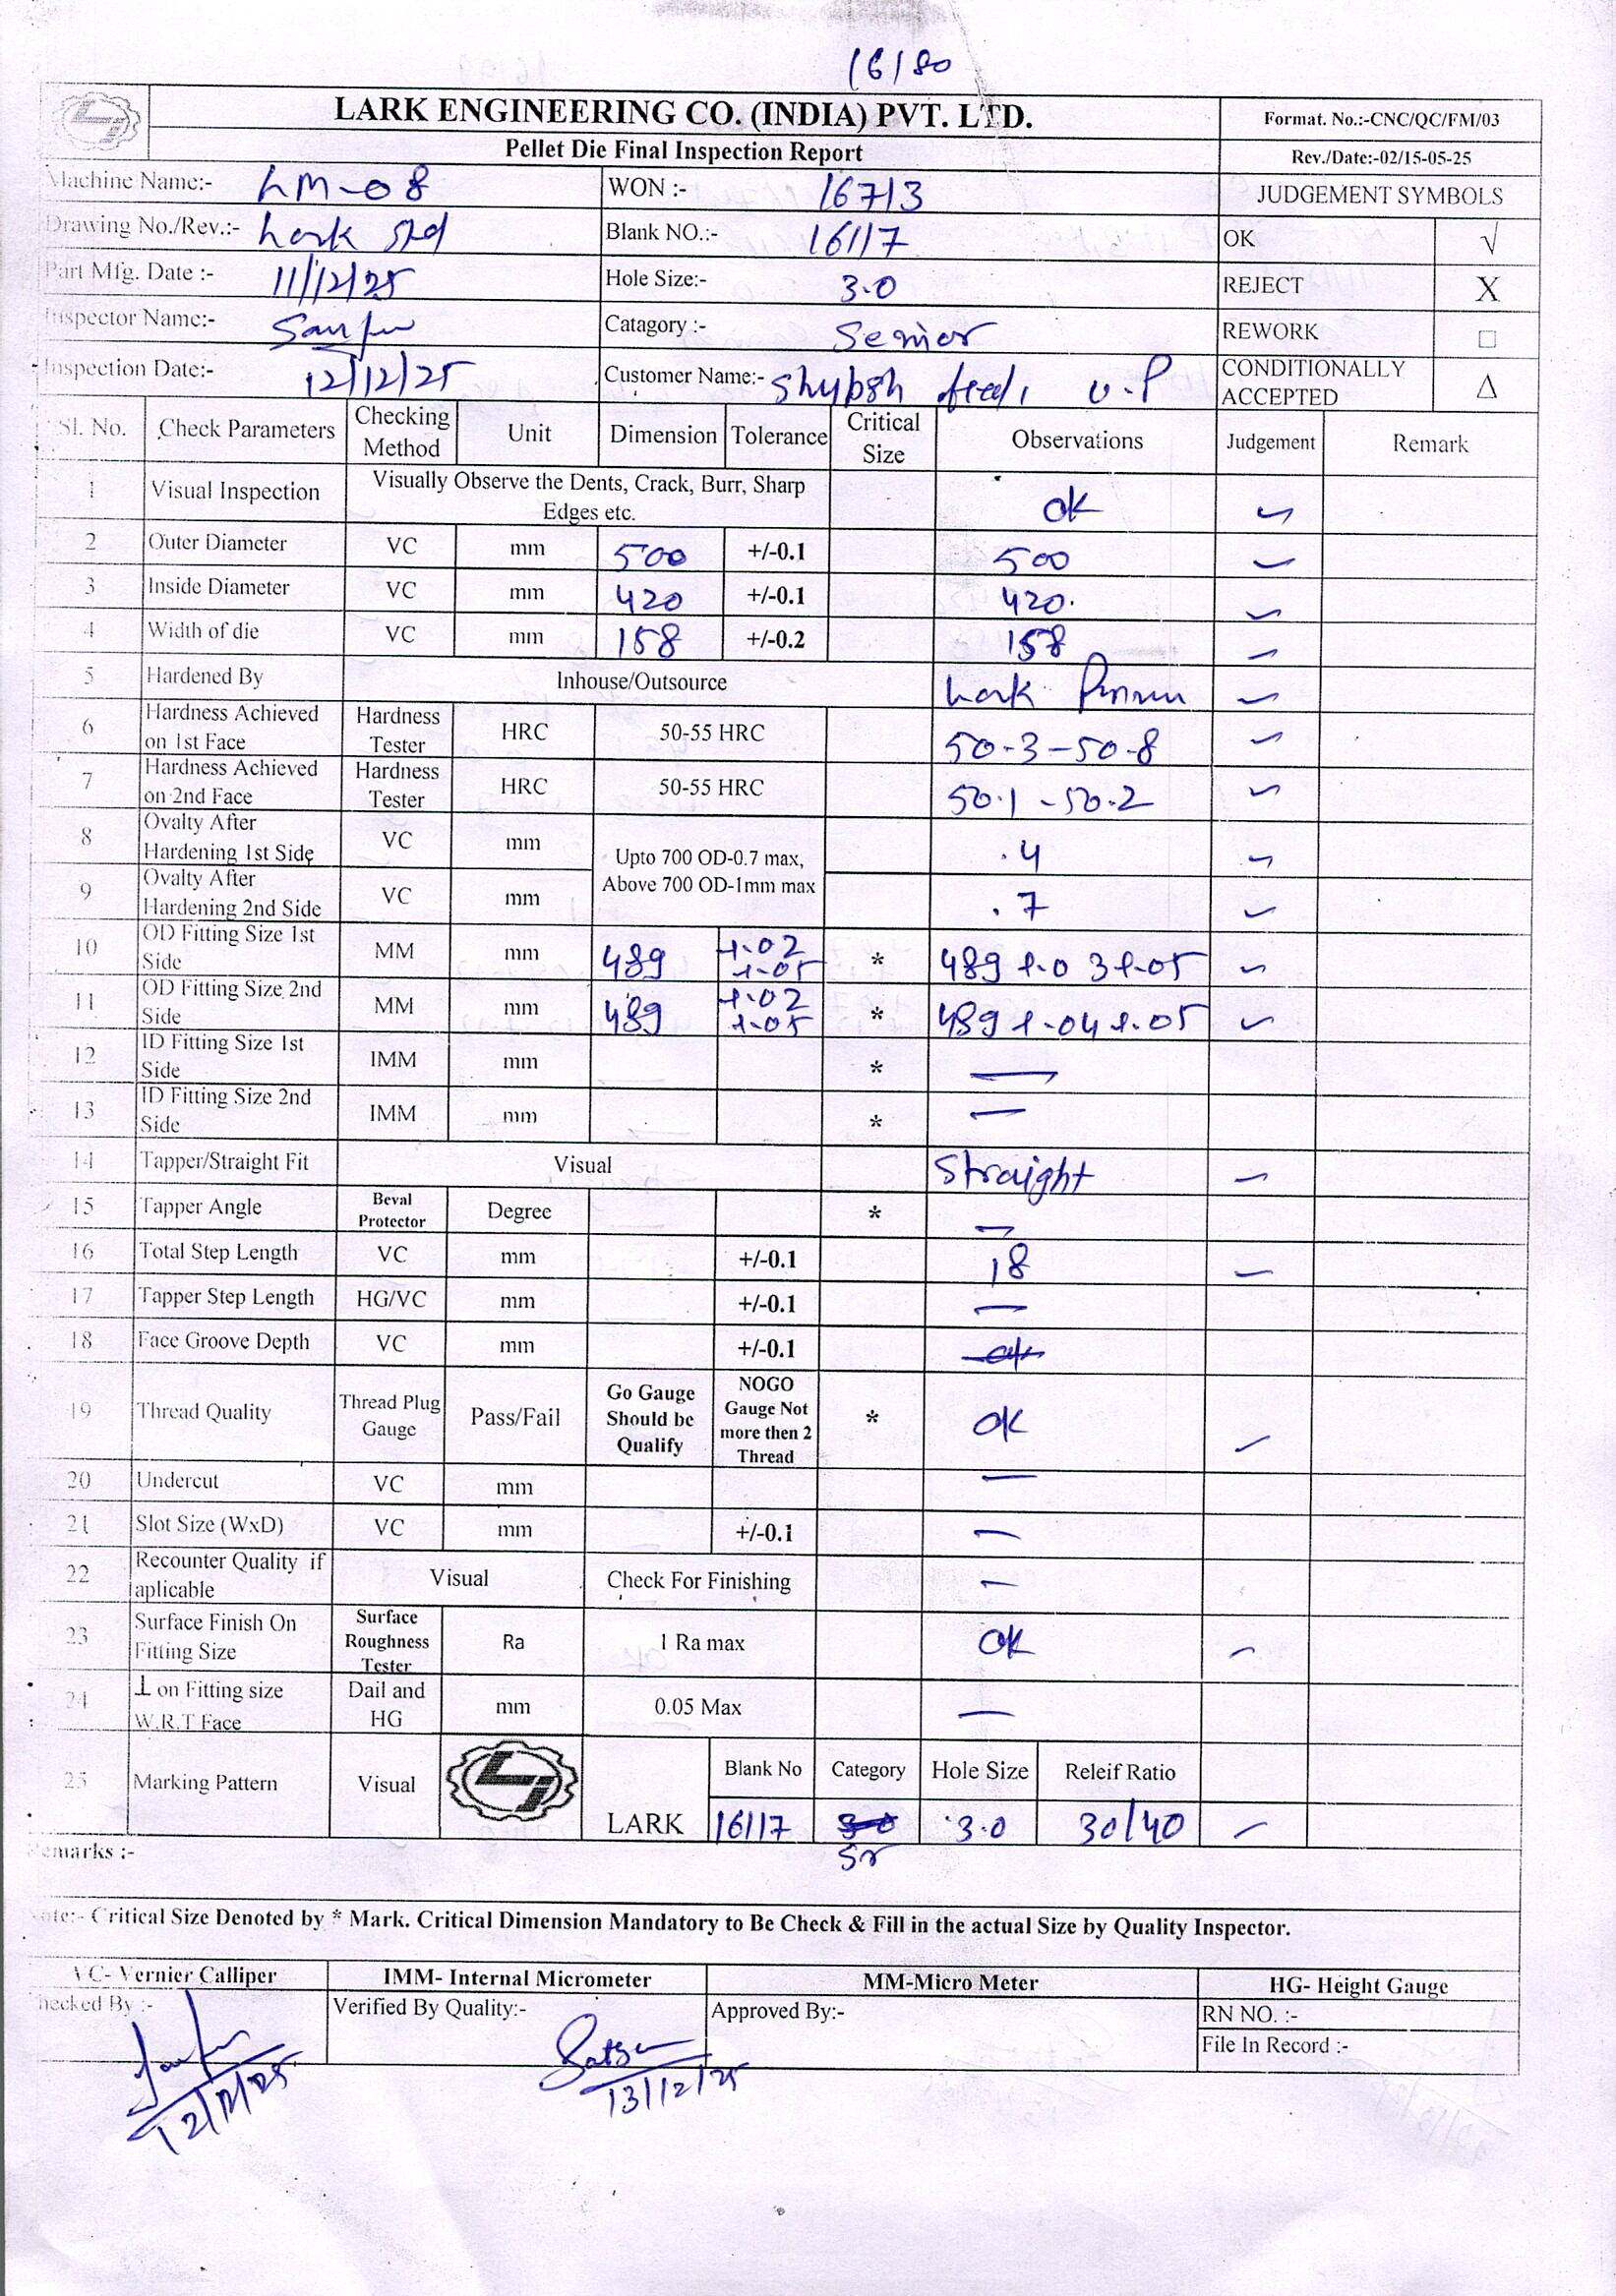 16180
LARK ENGINEERING CO. (INDIA) PVT. LTD. Format. No.:-CNC/QC/FM/03
Pellet Die Final Inspection Report Rev./Date:-02/15-05-25
Machine Name:- LM-08 WON :- 16713 JUDGEMENT SYMBOLS
Drawing No./Rev.:- Lark Std Blank NO.:- 16117 OK √
Part Mfg. Date :- 11/12/25 Hole Size:- 3.0 REJECT X
Inspector Name:- Catagory :- Senior REWORK □
Inspection Date:- 12/12/25 Customer Name:- feed, U.P CONDITIONALLY ACCEPTED Δ
Sl. No. Check Parameters Checking Method Unit Dimension Tolerance Critical Size Observations Judgement Remark
1 Visual Inspection Visually Observe the Dents, Crack, Burr, Sharp Edges etc. ok ✓
2 Outer Diameter VC mm 500 +/-0.1 500 ✓
3 Inside Diameter VC mm 420 +/-0.1 420. ✓
4 Width of die VC mm 158 +/-0.2 158 ✓
5 Hardened By Inhouse/Outsource Lark ✓
6 Hardness Achieved on 1st Face Hardness Tester HRC 50-55 HRC 50.3-50.8 ✓
7 Hardness Achieved on 2nd Face Hardness Tester HRC 50-55 HRC 50.1-50.2 ✓
8 Ovalty After Hardening 1st Side VC mm Upto 700 OD-0.7 max, Above 700 OD-1mm max .4 ✓
9 Ovalty After Hardening 2nd Side VC mm .7 ✓
10 OD Fitting Size 1st Side MM mm 489 +.02 +.05 * 489 +.03 +.05 ✓
11 OD Fitting Size 2nd Side MM mm 489 +.02 +.05 * 489 +.04 +.05 ✓
12 ID Fitting Size 1st Side IMM mm * —
13 ID Fitting Size 2nd Side IMM mm * —
14 Tapper/Straight Fit Visual Straight ✓
15 Tapper Angle Beval Protector Degree * —
16 Total Step Length VC mm +/-0.1 18 ✓
17 Tapper Step Length HG/VC mm +/-0.1 —
18 Face Groove Depth VC mm +/-0.1 —
19 Thread Quality Thread Plug Gauge Pass/Fail Go Gauge Should be Qualify NOGO Gauge Not more then 2 Thread * OK ✓
20 Undercut VC mm —
21 Slot Size (WxD) VC mm +/-0.1 —
22 Recounter Quality if aplicable Visual Check For Finishing —
23 Surface Finish On Fitting Size Surface Roughness Tester Ra 1 Ra max OK ✓
24 ⊥ on Fitting size W.R.T Face Dail and HG mm 0.05 Max —
25 Marking Pattern Visual LARK Blank No Category Hole Size Releif Ratio
16117 Sr 3.0 30/40 ✓
Remarks :-
Note:- Critical Size Denoted by * Mark. Critical Dimension Mandatory to Be Check & Fill in the actual Size by Quality Inspector.
VC- Vernier Calliper IMM- Internal Micrometer MM-Micro Meter HG- Height Gauge
Checked By :- Verified By Quality:- Approved By:- RN NO. :-
File In Record :-
12/12/25 13/12/25